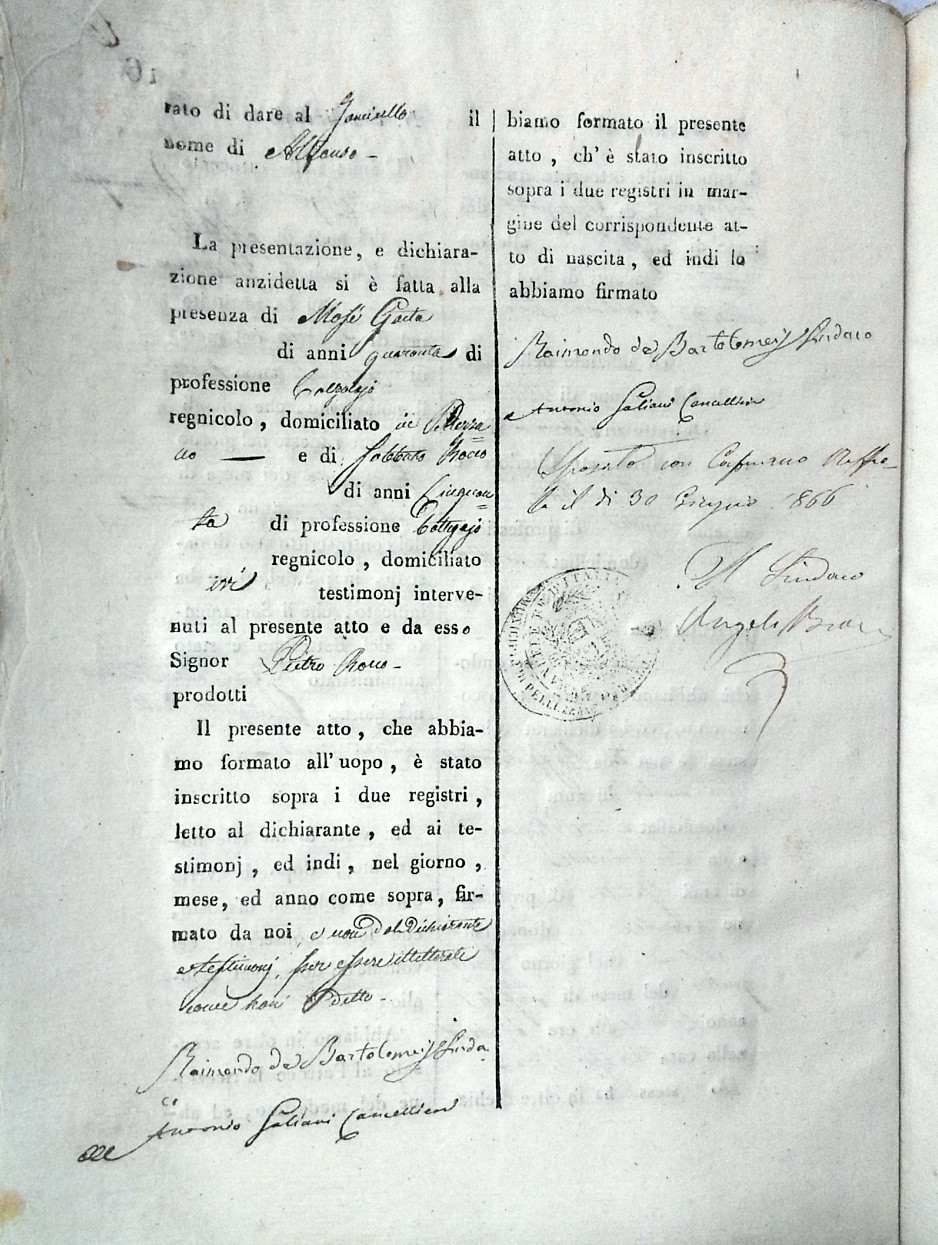 rato di dare al Fanciullo il
nome di Alfonso -
La presentazione, e dichiara-
zione anzidetta si è fatta alla
presenza di Mosè Gaeta
di anni quaranta di
professione Calzolajo
regnicolo, domiciliato in Pellezza=
no — e di Sabbato Rocco
di anni Cinquan=
ta di professione Bottegajo
regnicolo, domiciliato
ivi testimonj interve-
nuti al presente atto e da esso
Signor Pietro Rocco -
prodotti
Il presente atto, che abbia-
mo formato all'uopo, è stato
inscritto sopra i due registri,
letto al dichiarante, ed ai te-
stimonj, ed indi, nel giorno,
mese, ed anno come sopra, fir-
mato da noi, e non dal dichiarante
e testimonj, per essere illetterati
come han detto -
Raimondo de Bartolomeis Sindaco
Antonio Galiani Cancelliere
biamo formato il presente
atto, ch'è stato inscritto
sopra i due registri in mar-
gine del corrispondente at-
to di nascita, ed indi lo
abbiamo firmato
Raimondo de Bartolomeis Sindaco
Antonio Galiani Cancelliere
Sposato con Capuano Raffae-
la il di 30 Giugno 1866
Il Sindaco
Angelo